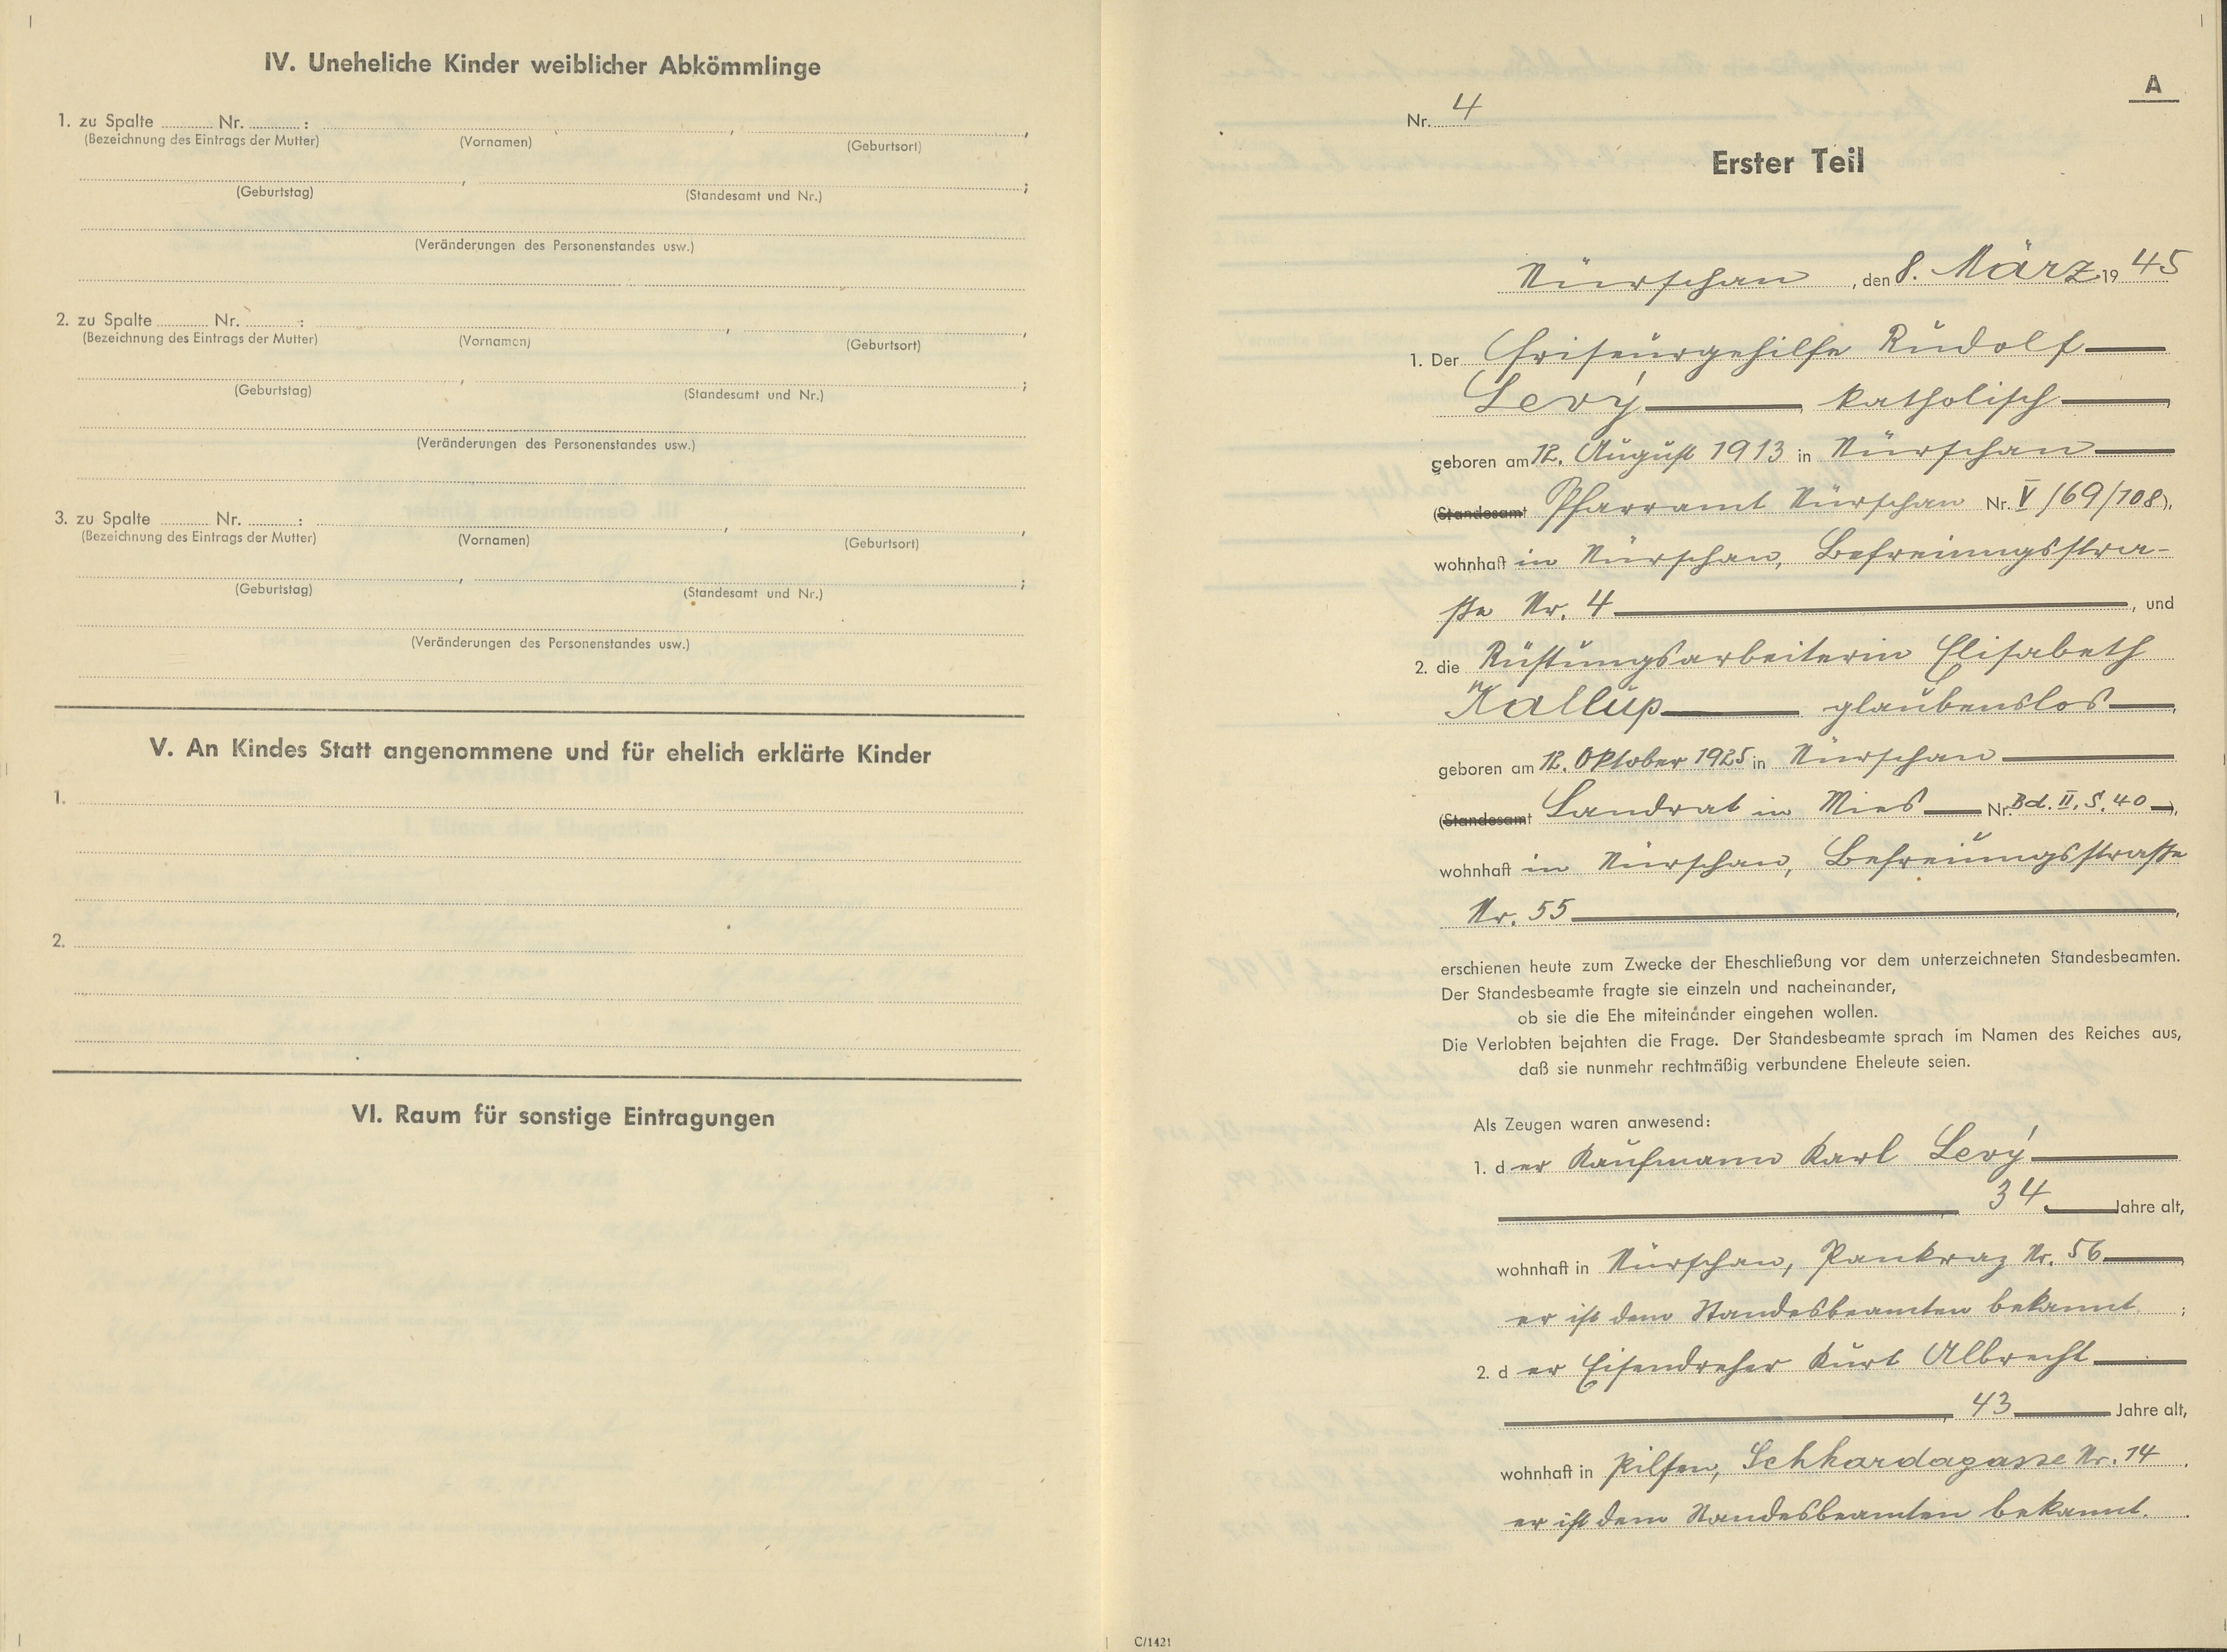 IV. Uneheliche Kinder weiblicher Abkömmlinge
1. zu Spalte ............ Nr. ............ : , ,
(Bezeichnung des Eintrags der Mutter) (Vornamen) (Geburtsort)
, ;
(Geburtstag) (Standesamt und Nr.)
(Veränderungen des Personenstandes usw.)
2. zu Spalte ............ Nr. ............ : , ,
(Bezeichnung des Eintrags der Mutter) (Vornamen) (Geburtsort)
, ;
(Geburtstag) (Standesamt und Nr.)
(Veränderungen des Personenstandes usw.)
3. zu Spalte ............ Nr. ............ : , ,
(Bezeichnung des Eintrags der Mutter) (Vornamen) (Geburtsort)
, ;
(Geburtstag) (Standesamt und Nr.)
(Veränderungen des Personenstandes usw.)
V. An Kindes Statt angenommene und für ehelich erklärte Kinder
1.
2.
VI. Raum für sonstige Eintragungen
A
Nr. 4
Erster Teil
Nürschan, den 8. März 19 45
1. Der Friseurgehilfe Rudolf
Levý katholisch,
geboren am 12. August 1913 in Nürschan
(Standesamt Pfarramt Nürschan Nr. V/69/108),
wohnhaft in Nürschan, Befreiungsstra-
ße Nr. 4, und
2. die Rüstungsarbeiterin Elisabeth
Kallup glaubenslos,
geboren am 12. Oktober 1925 in Nürschan
(Standesamt Landrat in Mies Nr. Bd. II, S. 40),
wohnhaft in Nürschan, Befreiungsstraße
Nr. 55,
erschienen heute zum Zwecke der Eheschließung vor dem unterzeichneten Standesbeamten.
Der Standesbeamte fragte sie einzeln und nacheinander,
ob sie die Ehe miteinander eingehen wollen.
Die Verlobten bejahten die Frage. Der Standesbeamte sprach im Namen des Reiches aus,
daß sie nunmehr rechtmäßig verbundene Eheleute seien.
Als Zeugen waren anwesend:
1. der Kaufmann Karl Levý
34 Jahre alt,
wohnhaft in Nürschan, Pankraz Nr. 56
er ist dem Standesbeamten bekannt ;
2. der Eisendreher Kurt Albrecht
, 43 Jahre alt,
wohnhaft in Pilsen, Nr. 14 .
er ist dem Standesbeamten bekannt.
C/1421